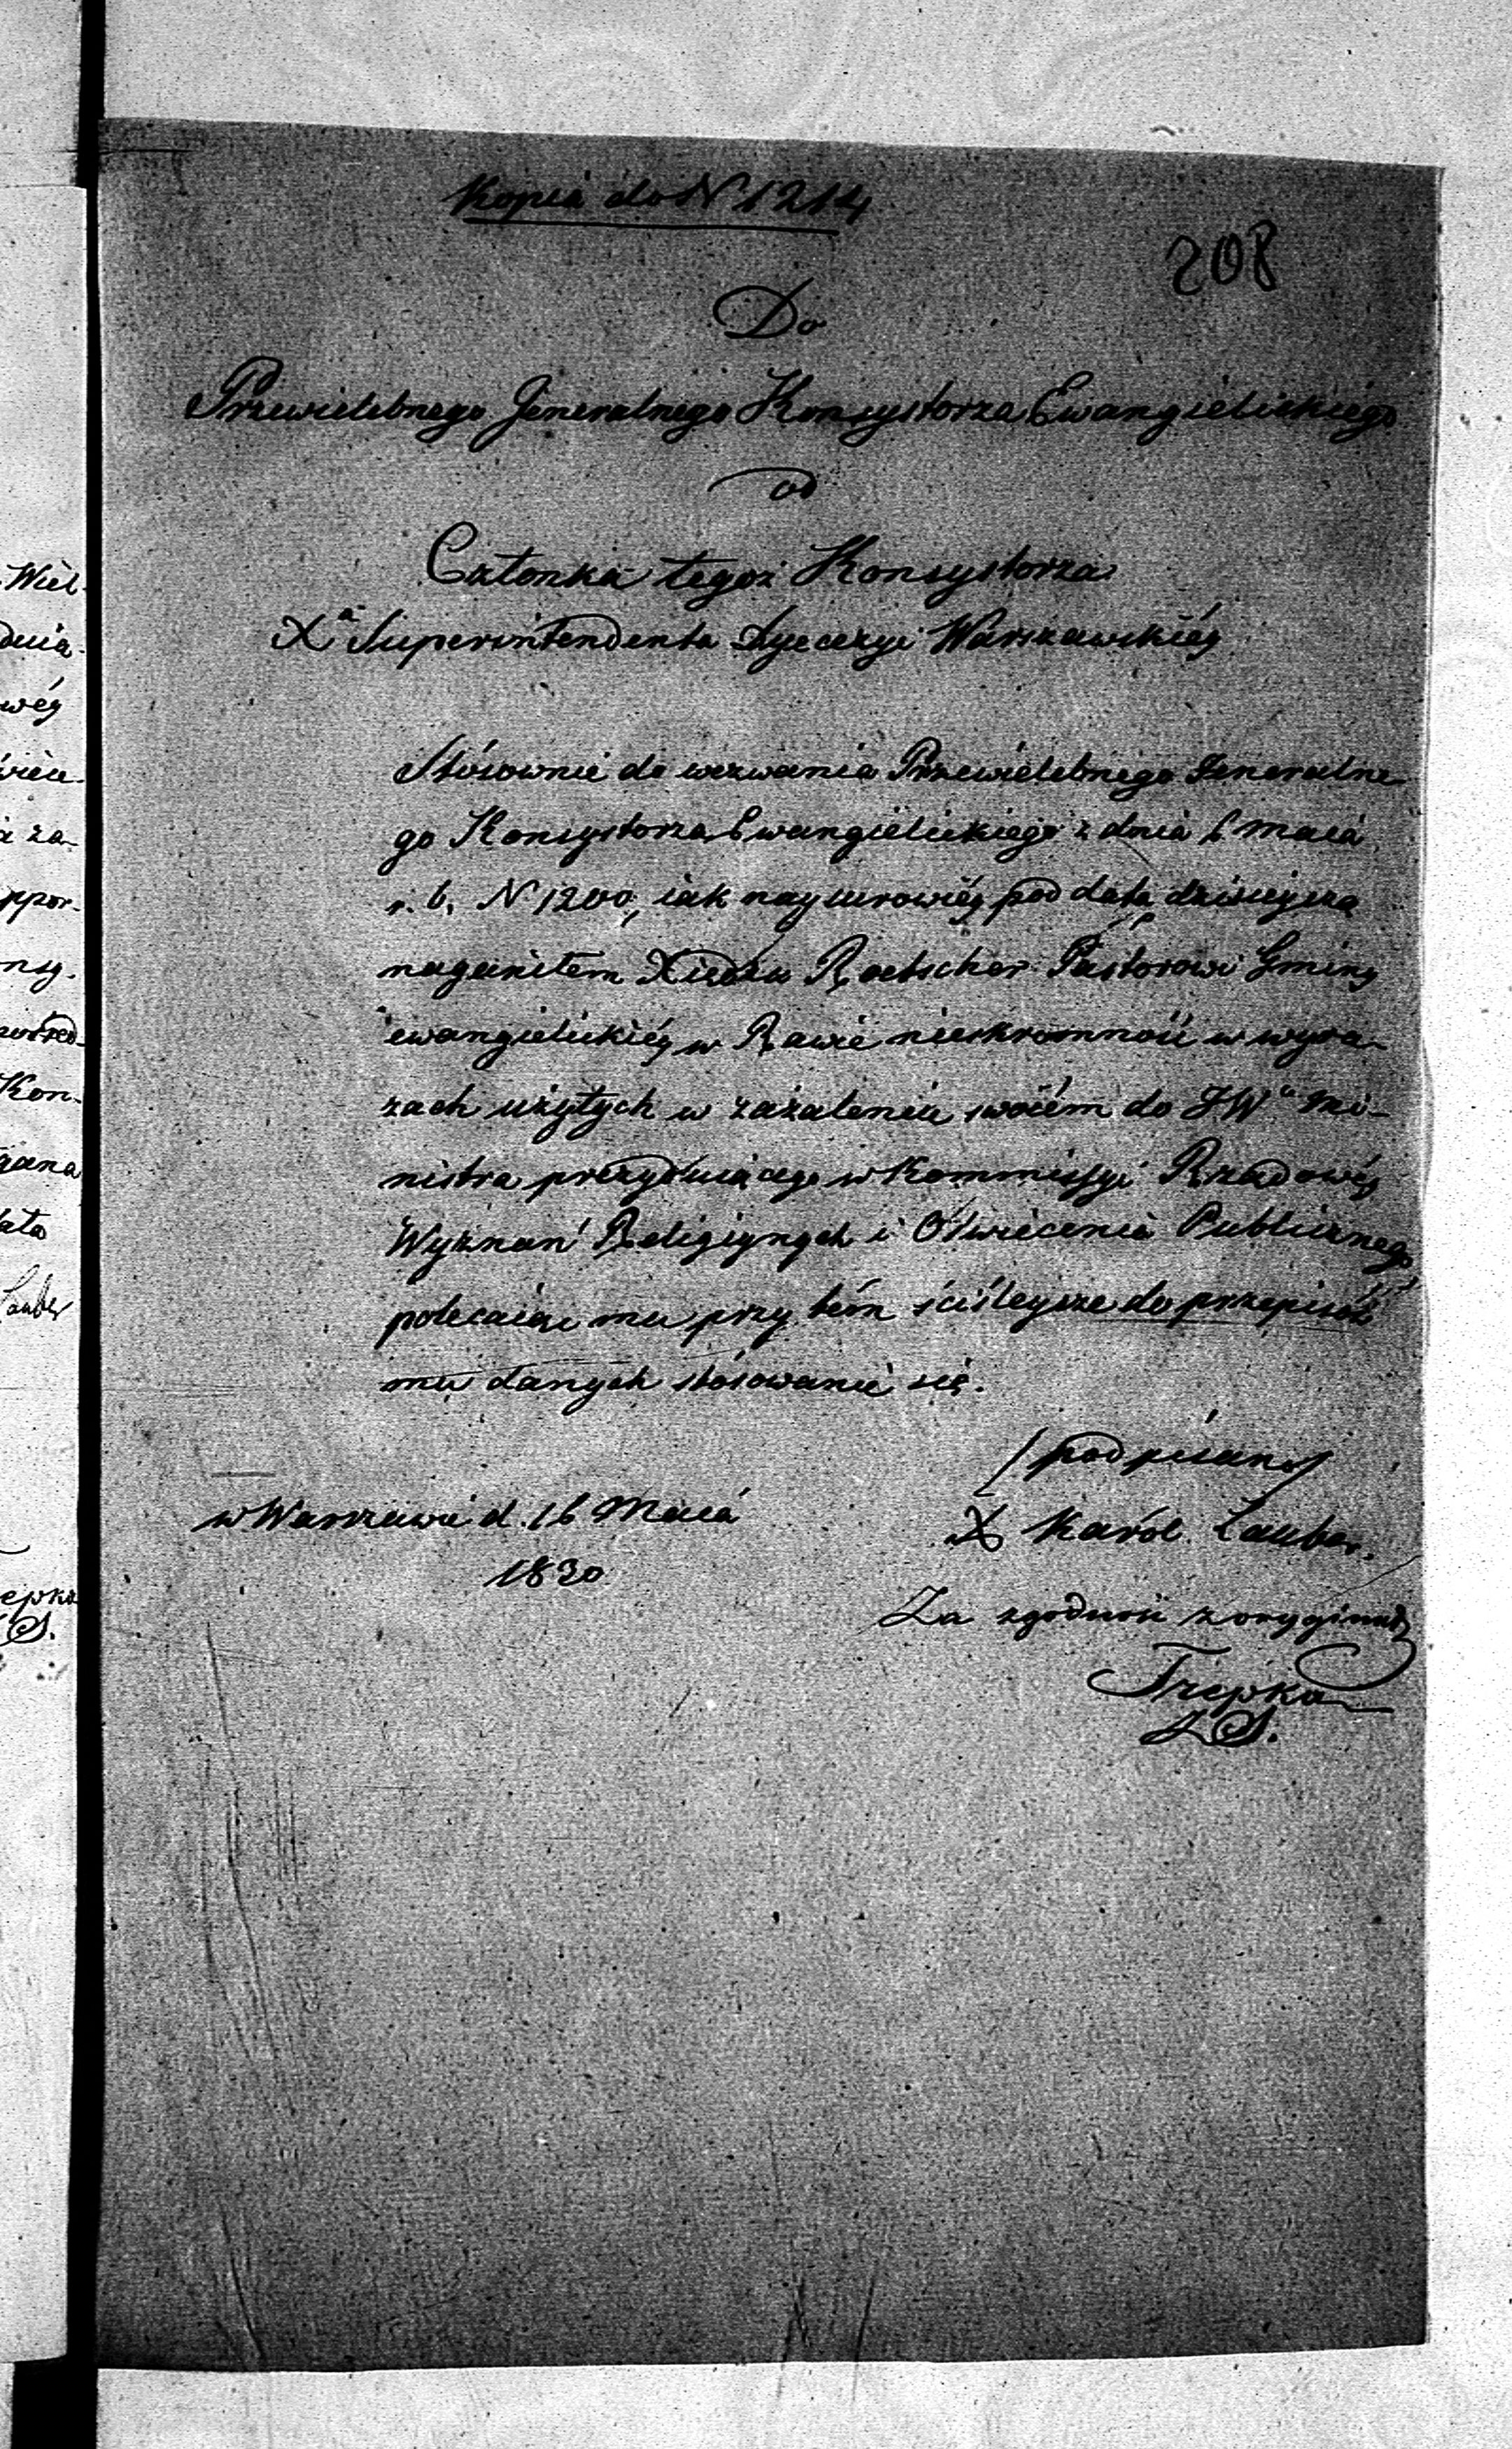 Kopia do N 1214
208
Do
Przewielebnego Jeneralnego Konsystorza Ewangielickiego
od
Członka tegoż Konsystorza
Xa Superintendenta Dyecezyi Warszawskiéy
Stósownie do wezwania Przewielebnego Jeneralne
go Konsystorza Ewangielickiego z dnia 6 Maia
r. b. N 1200, iak naysurowiéy pod datą dzisieyszą
naganiłem Xiędzu Roetscher Pastorowi Gminy
ewangielickiéy w Rawie nieskromność w wyra-
zach użytych w zażaleniu swoiém do JWo Mi-
nistra prezyduiącego w Kommissyi Rządowéy
Wyznań Religiynych i Oświecenia Publicznego
polecaiąc mu przy tém ściśleysze do przepisów
mu danych stósowanie się.
/podpisano/
w Warszawie d. 16 Maia
1830
X Karól Lauber.
Za zgodność z oryginałem
Trepka
Z S.
Wiel-
dnia
wéy
a za-
ppor-
nsy-
Kon-
gana
Lauber
epka
S.